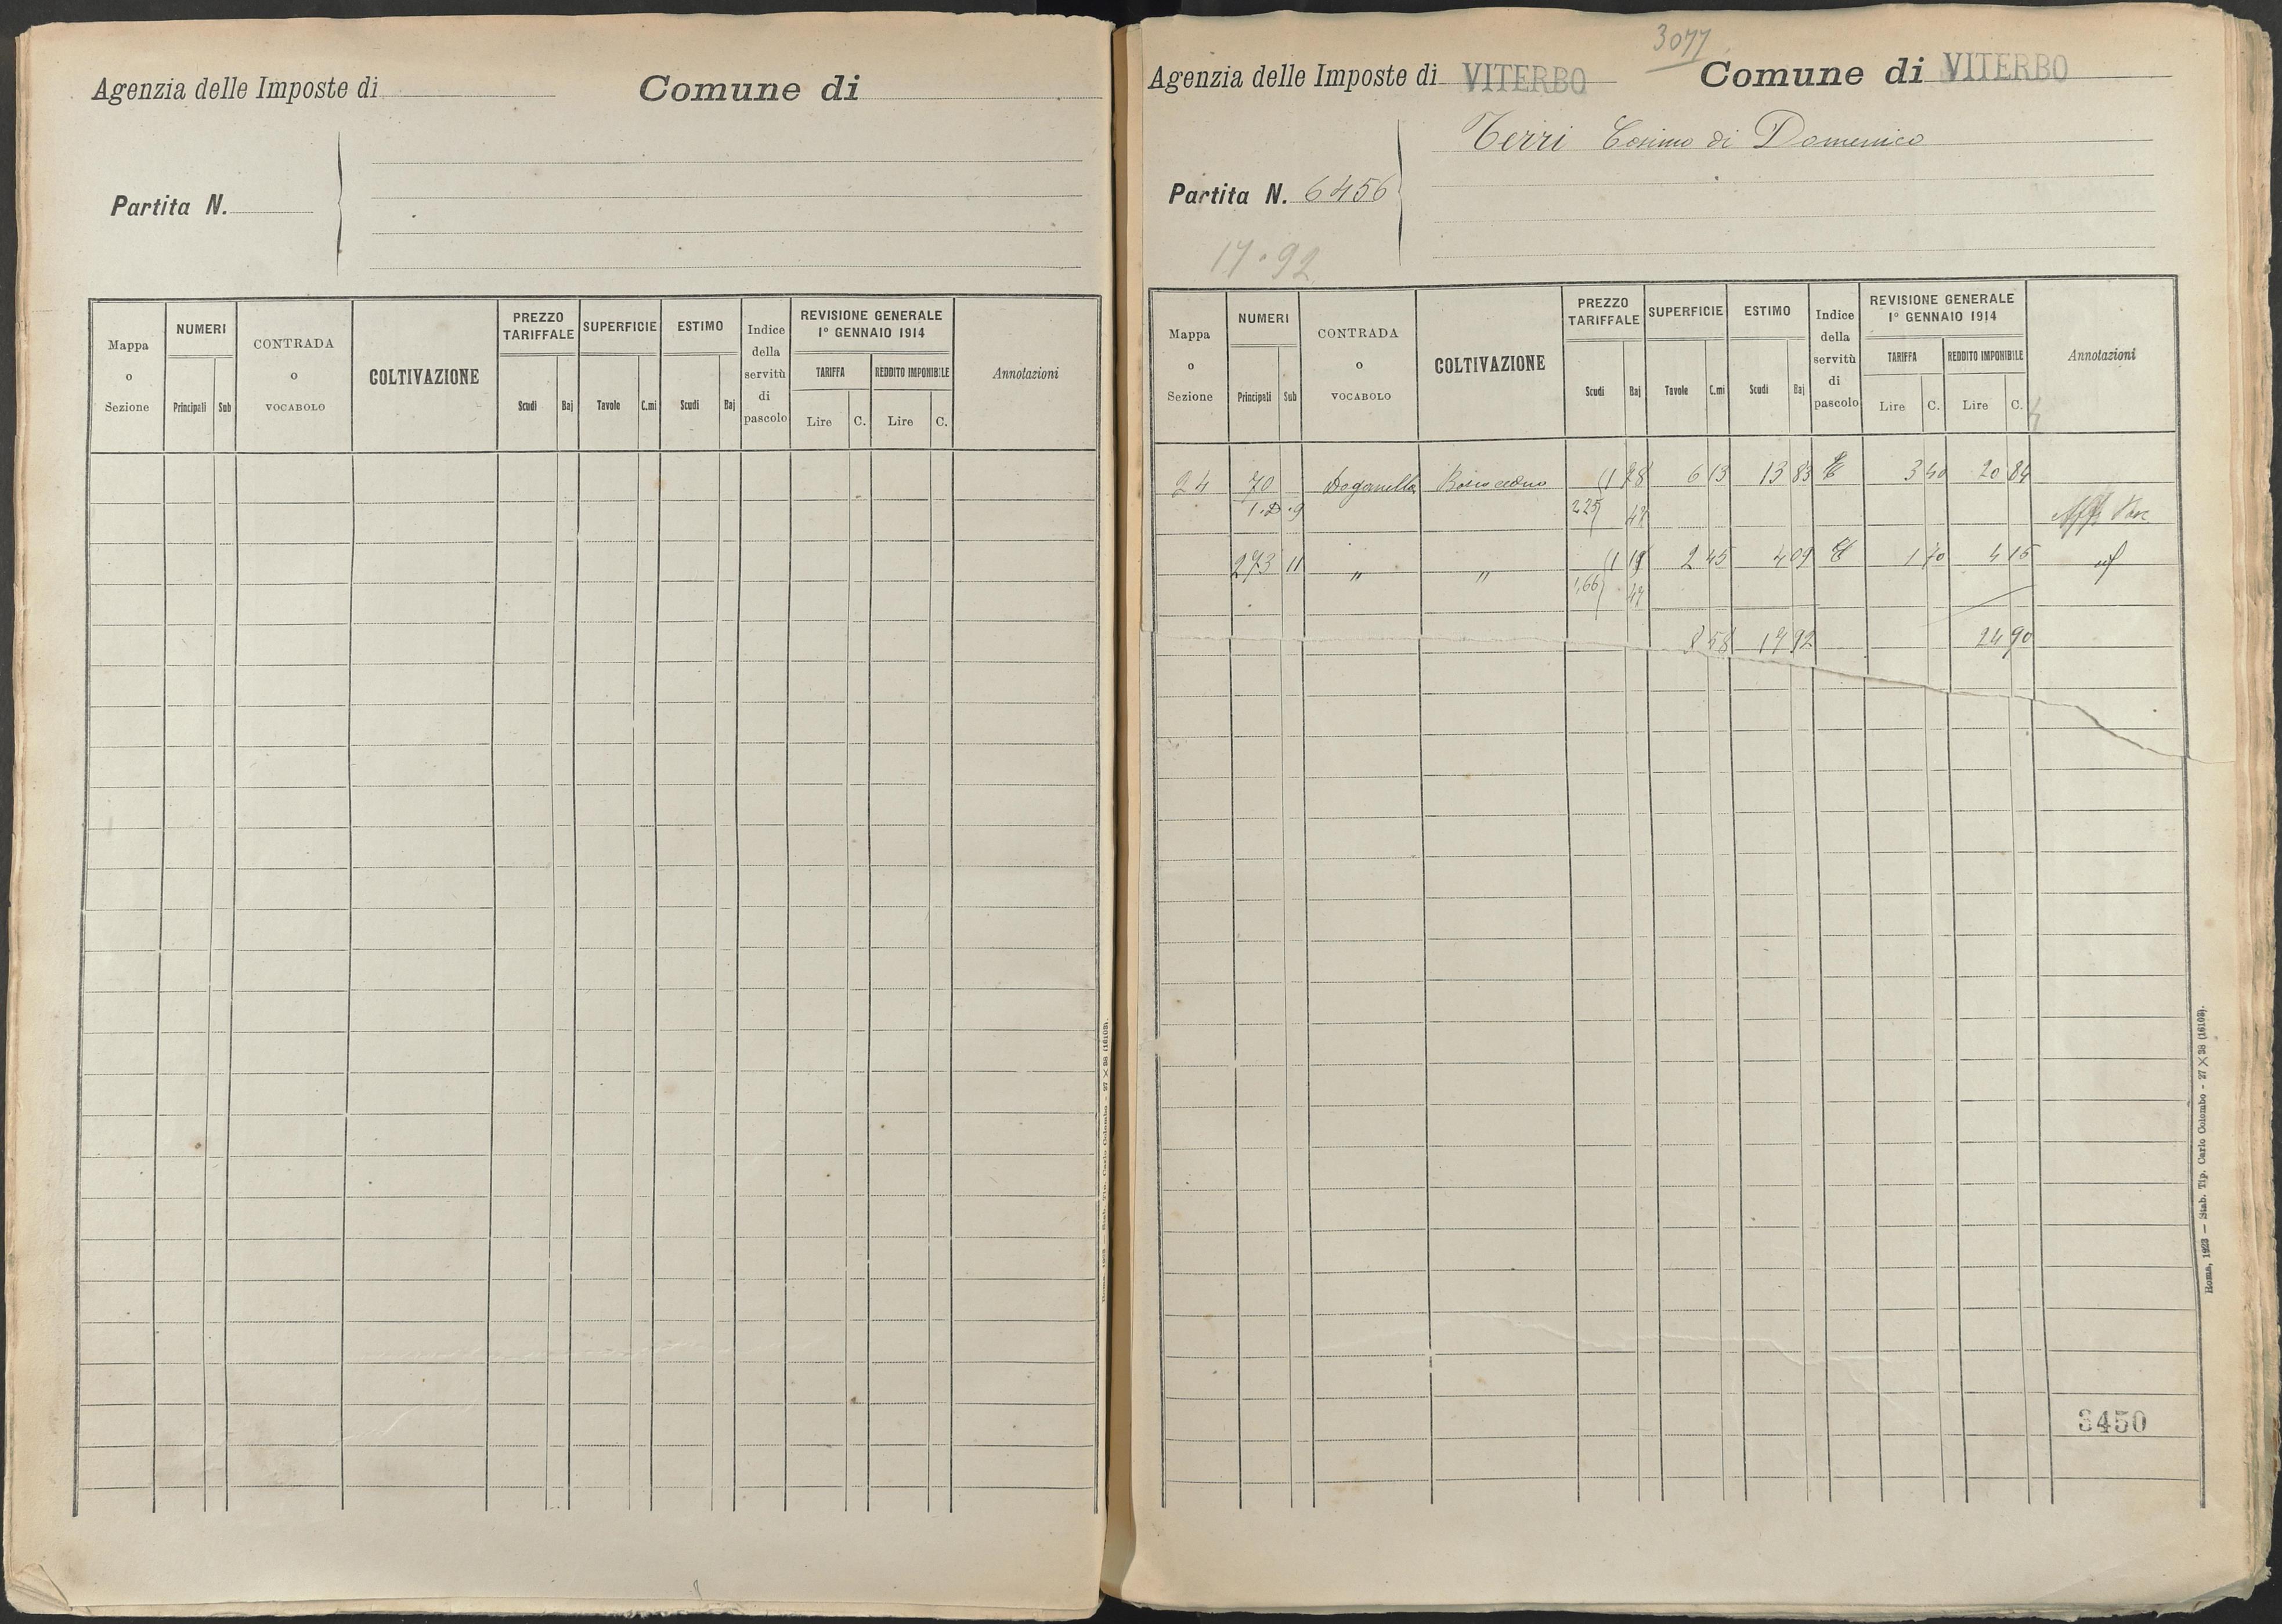 Agenzia delle Imposte di
Comune di
Partita N.
Mappa o Sezione
NUMERI
Principali
Sub
CONTRADA o VOCABOLO
COLTIVAZIONE
PREZZO TARIFFALE
Scudi
Baj
SUPERFICIE
Tavole
C.mi
ESTIMO
Scudi
Baj
Indice della servitù di pascolo
REVISIONE GENERALE
1º GENNAIO 1914
TARIFFA
REDDITO IMPONIBILE
Lire
C.
Lire
C.
Annotazioni
Roma, 1923 — Stab. Tip. Carlo Colombo - 27 × 38 (16103).
3077
Agenzia delle Imposte di VITERBO
Comune di VITERBO
Terri Cosimo di Domenico
Partita N. 6456
17.92
Mappa o Sezione
NUMERI
Principali
Sub
CONTRADA o VOCABOLO
COLTIVAZIONE
PREZZO TARIFFALE
Scudi
Baj
SUPERFICIE
Tavole
C.mi
ESTIMO
Scudi
Baj
Indice della servitù di pascolo
REVISIONE GENERALE
1º GENNAIO 1914
TARIFFA
REDDITO IMPONIBILE
Lire
C.
Lire
C.
Annotazioni
24 70 Doganella Bosco ceduo 1 78 6 13 13 83 3 40 20 84
2 25 47
273 11 " " 1 19 2 45 4 09 1 70 4 16
1,66 47
8 58 17 92 24 90
3450
Roma, 1923 — Stab. Tip. Carlo Colombo - 27 × 38 (16103).